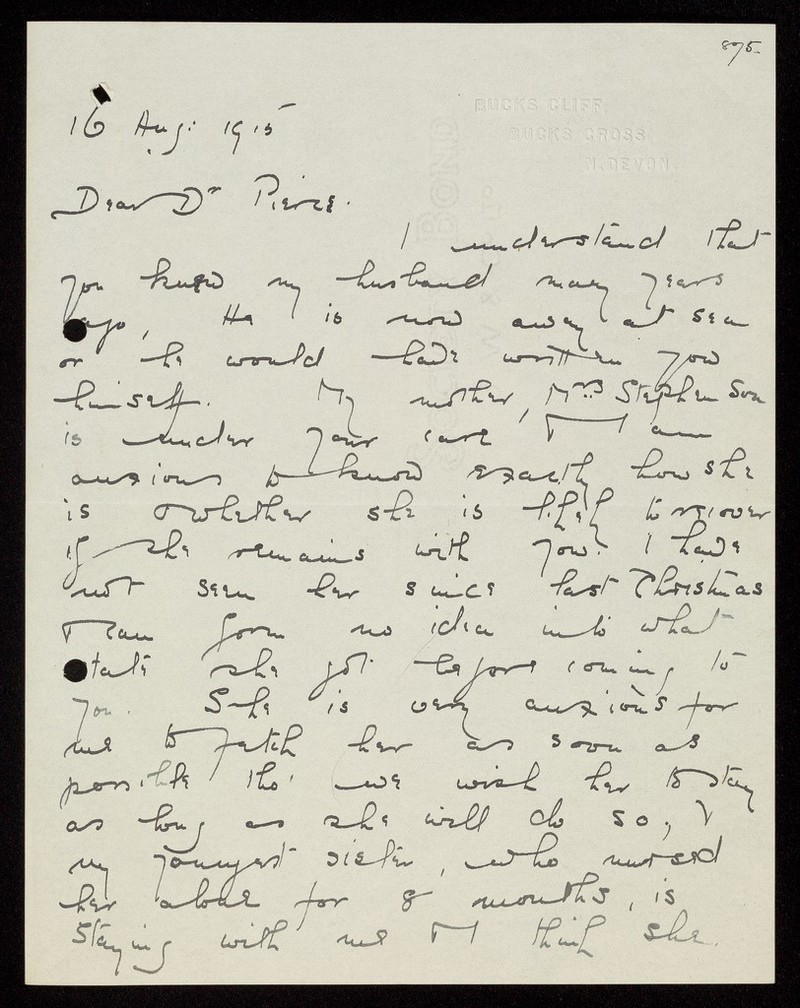 875.
BUCKS CLIFF,
BUCKS CROSS,
N. DEVON.
16 Aug: 1915
Dear Dr Pierce.
I understand that
you knew my husband many years
ago, He is now away at sea
or he would have written you
himself. My mother, Mrs Stephenson
is under your care & I am
anxious to know exactly how she
is & whether she is likely to recover
if she remains with you. I have
not seen her since last Christmas
& can form no idea into what
state she got before coming to
you. She is very anxious for
me to fetch her as soon as
possible tho' we wish her to stay
as long as she will do so, &
my youngest sister, who nursed
her alone for 8 months, is
staying with me & I think she